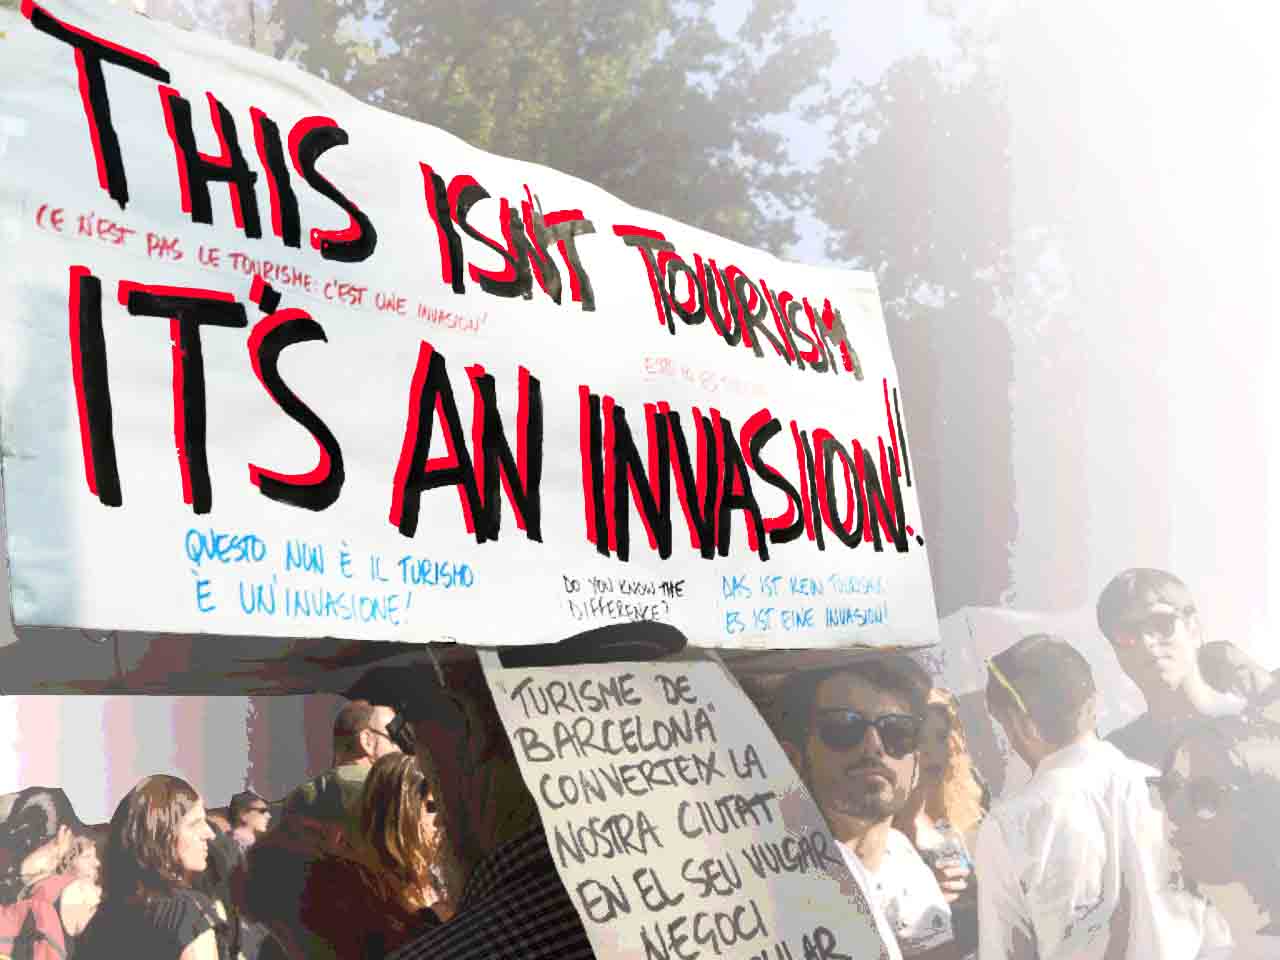 THIS ISN'T TOURISM
CE N'EST PAS LE TOURISME: C'EST UNE INVASION!
IT'S AN INVASION!!
QUESTO NUN È IL TURISMO
È UN'INVASIONE!
DO YOU KNOW THE
DIFFERENCE?
DAS IST KEIN TOURISMUS
ES IST EINE INVASION!
"TURISME DE
BARCELONA"
CONVERTEIX LA
NOSTRA CIUTAT
EN EL SEU VULGAR
NEGOCI